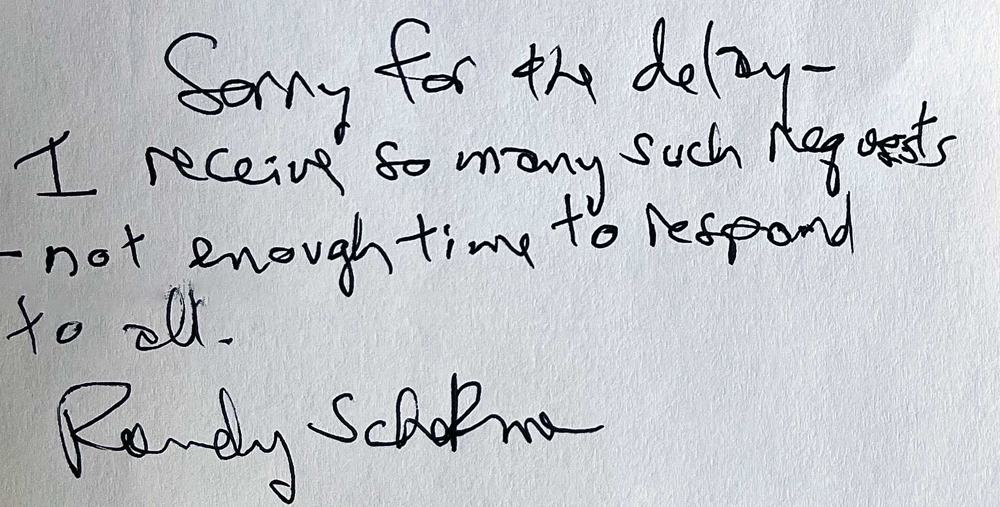 Sorry for the delay-
I receive so many such requests
- not enough time to respond
to all.
Randy Schekman